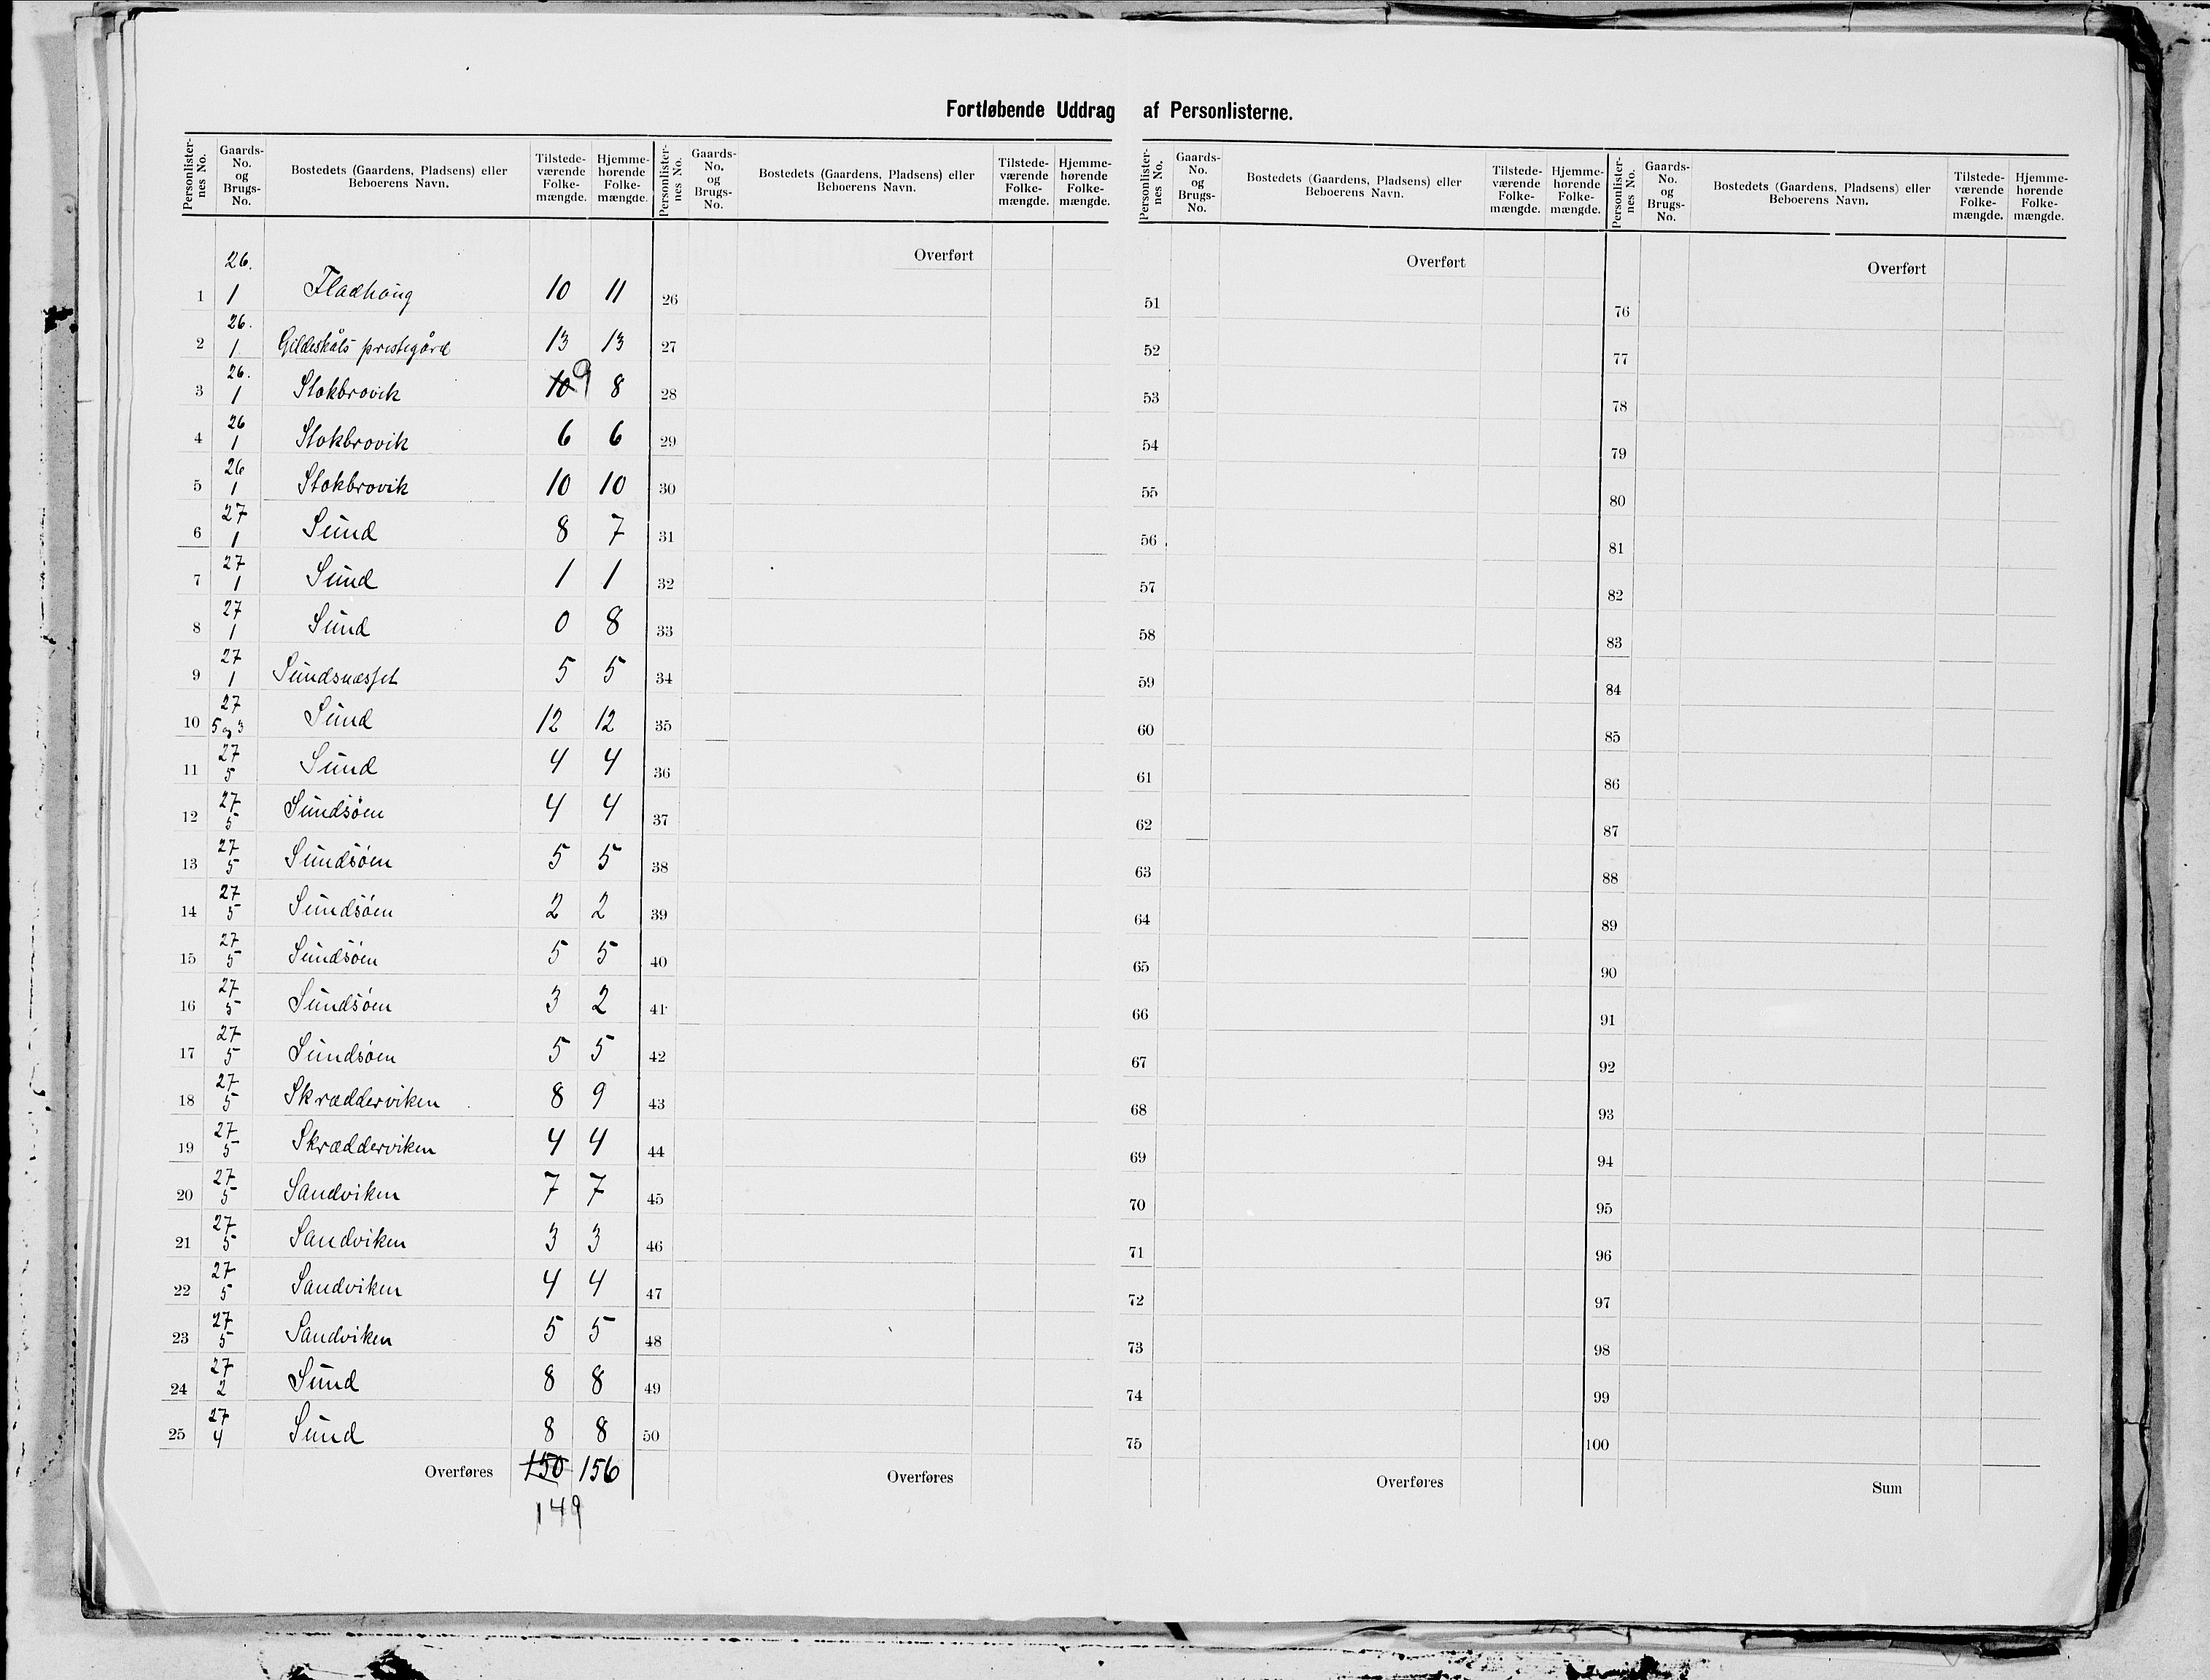 Fortløbende Uddrag af Personlisterne.
Personlister-nes No. Gaards-No. og Brugs-No. Bostedets (Gaardens, Pladsens) eller Beboerens Navn. Tilstede-værende Folke-mængde. Hjemme-hørende Folke-mængde.
Personlister-nes No. Gaards-No. og Brugs-No. Bostedets (Gaardens, Pladsens) eller Beboerens Navn. Tilstede-værende Folke-mængde. Hjemme-hørende Folke-mængde.
Personlister-nes No. Gaards-No. og Brugs-No. Bostedets (Gaardens, Pladsens) eller Beboerens Navn. Tilstede-værende Folke-mængde. Hjemme-hørende Folke-mængde.
Personlister-nes No. Gaards-No. og Brugs-No. Bostedets (Gaardens, Pladsens) eller Beboerens Navn. Tilstede-værende Folke-mængde. Hjemme-hørende Folke-mængde.
1 26. 1 Fladhaug 10 11
2 26. 1 Gildeskåls prestegård 13 13
3 26. 1 Stokbrovik 10 9 8
4 26 1 Stokbrovik 6 6
5 26 1 Stokbrovik 10 10
6 27 1 Sund 8 7
7 27 1 Sund 1 1
8 27 1 Sund 0 8
9 27 1 Sundsnæsset 5 5
10 27 5 og 3 Sund 12 12
11 27 5 Sund 4 4
12 27 5 Sundsøen 4 4
13 27 5 Sundsøen 5 5
14 27 5 Sundsøen 2 2
15 27 5 Sundsøen 5 5
16 27 5 Sundsøen 3 2
17 27 5 Sundsøen 5 5
18 27 5 Skrædderviken 8 9
19 27 5 Skrædderviken 4 4
20 27 5 Sandviken 7 7
21 27 5 Sandviken 3 3
22 27 5 Sandviken 4 4
23 27 5 Sandviken 5 5
24 27 2 Sund 8 8
25 27 4 Sund 8 8
Overføres 150 156
149
Overført
26
27
28
29
30
31
32
33
34
35
36
37
38
39
40
41
42
43
44
45
46
47
48
49
50
Overføres
Overført
51
52
53
54
55
56
57
58
59
60
61
62
63
64
65
66
67
68
69
70
71
72
73
74
75
Overføres
Overført
76
77
78
79
80
81
82
83
84
85
86
87
88
89
90
91
92
93
94
95
96
97
98
99
100
Sum